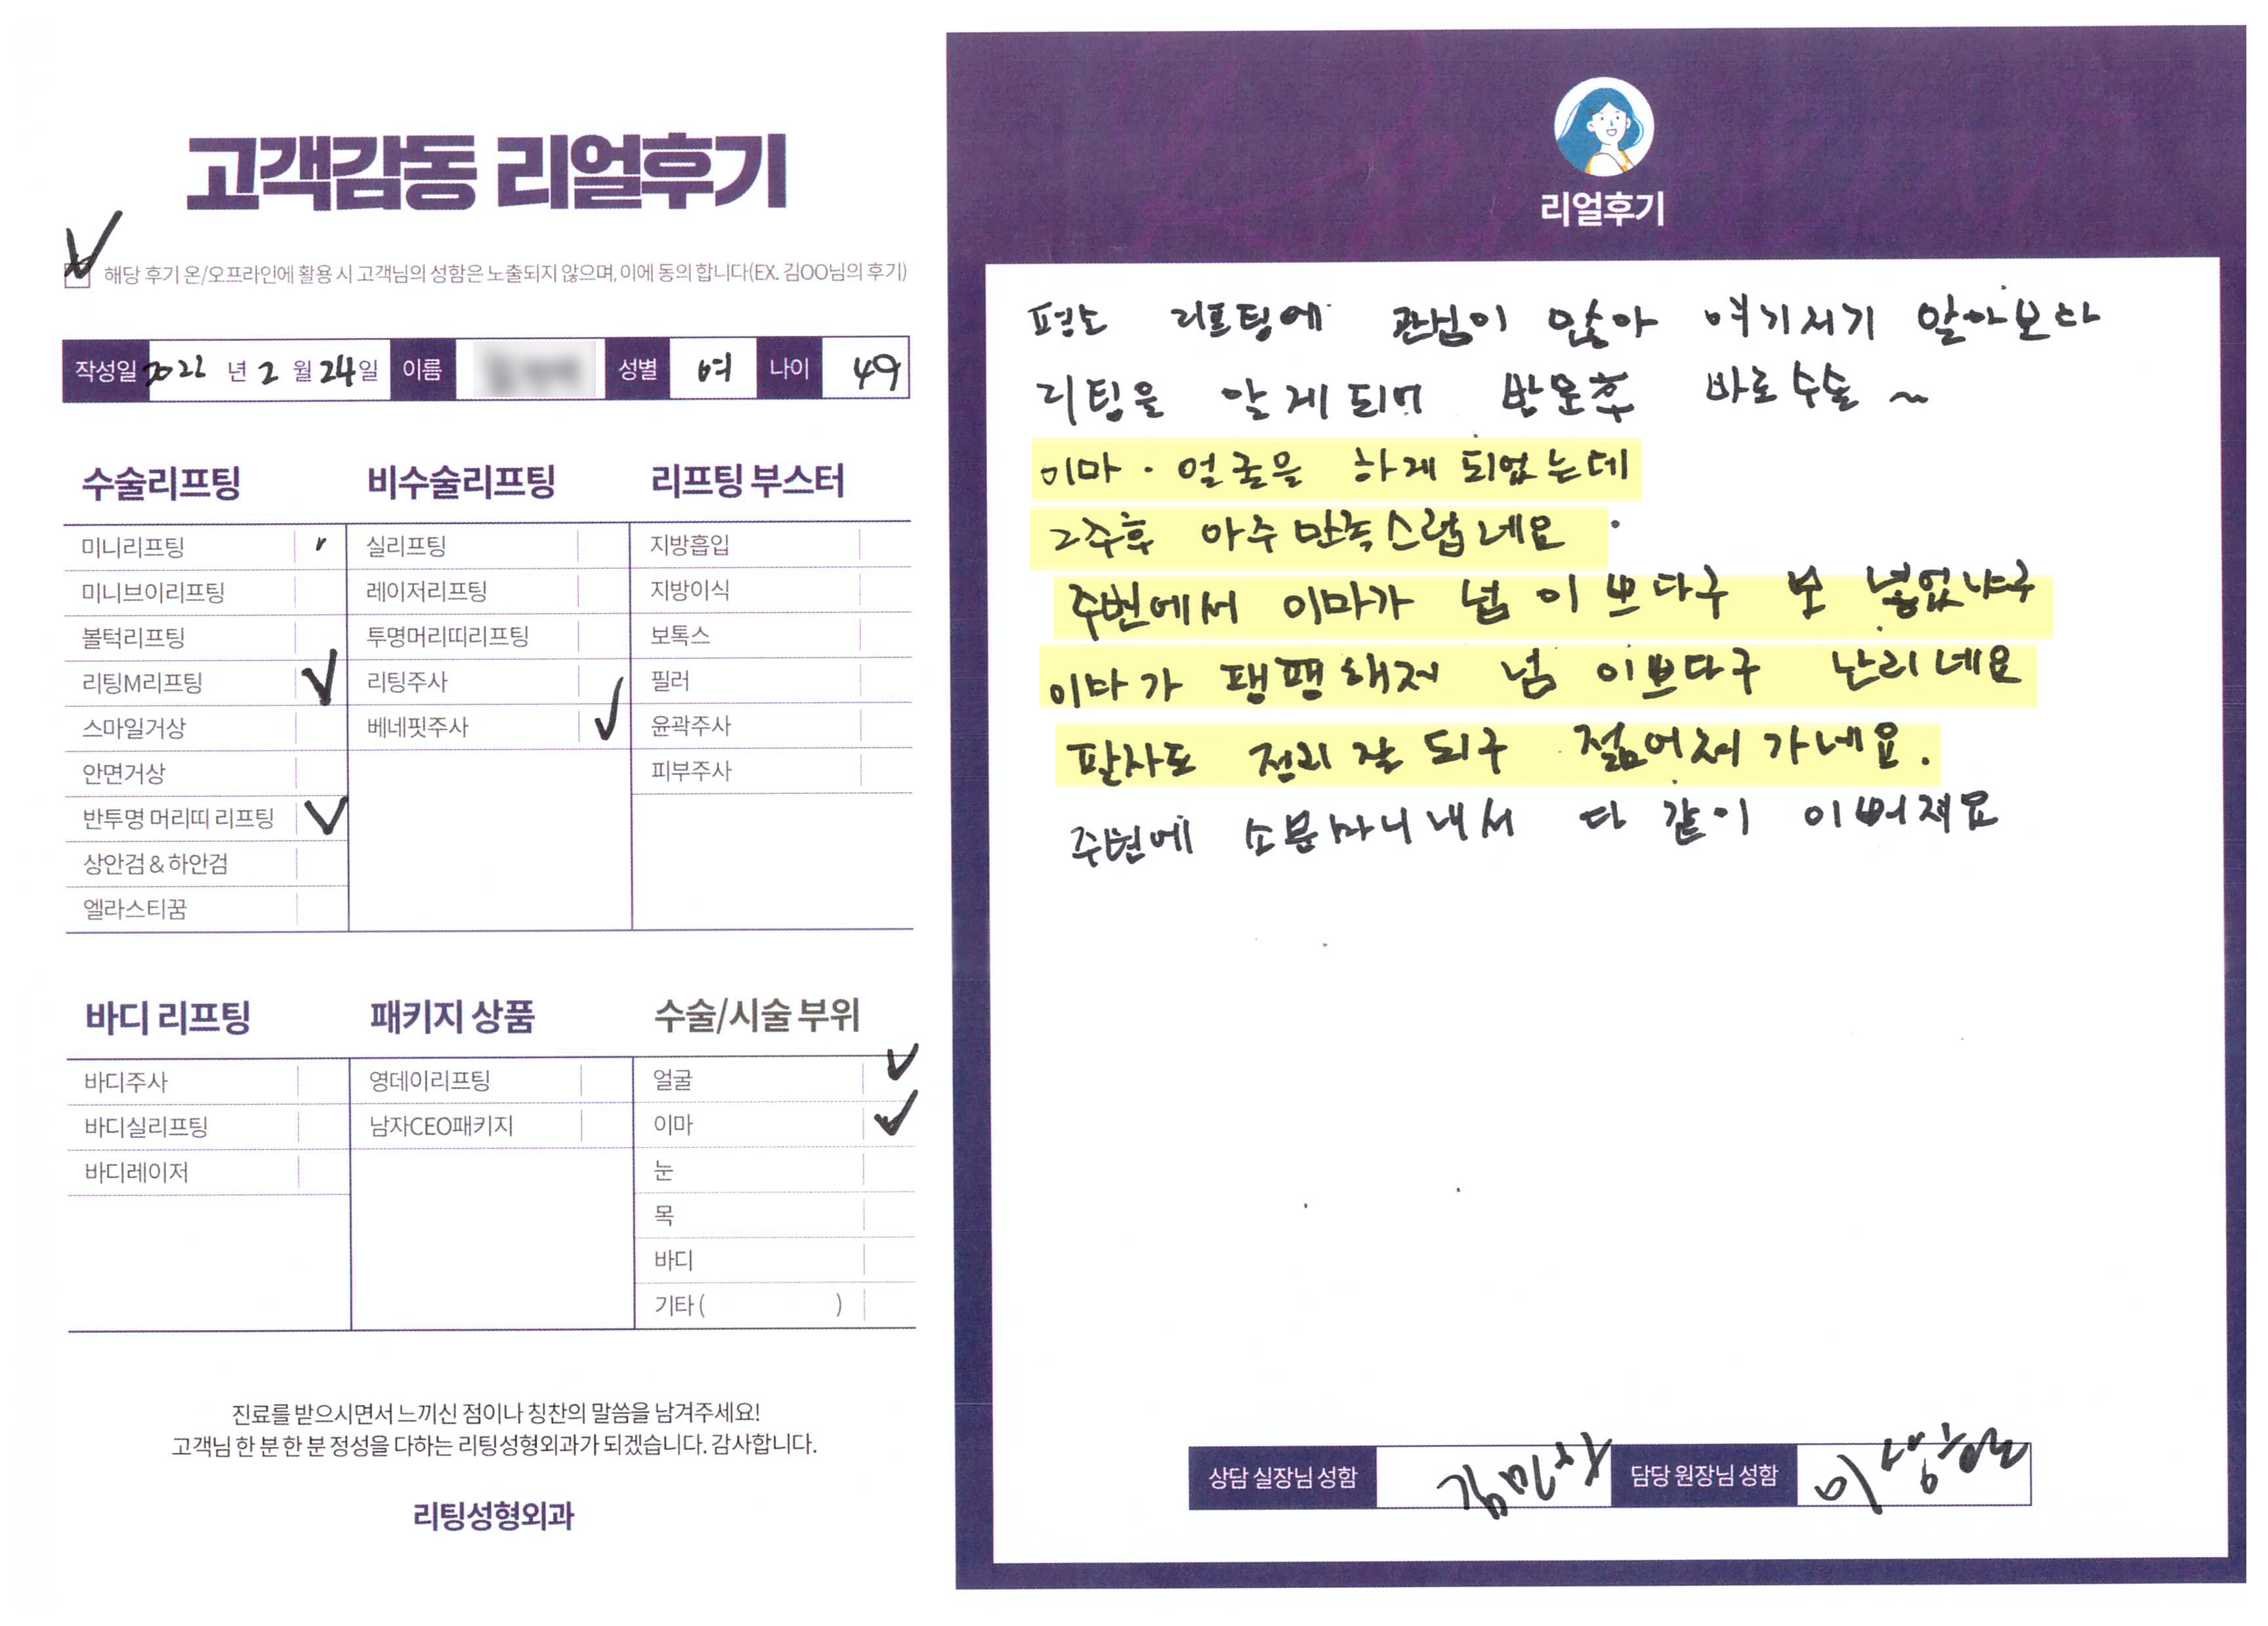 고객감동 리얼후기
해당 후기 온/오프라인에 활용 시 고객님의 성함은 노출되지 않으며, 이에 동의 합니다(EX. 김OO님의 후기)
작성일 2022 년 2 월 24일 이름 성별 여 나이 49
수술리프팅 비수술리프팅 리프팅 부스터
미니리프팅 실리프팅 지방흡입
미니브이리프팅 레이저리프팅 지방이식
볼턱리프팅 투명머리띠리프팅 보톡스
리팅M리프팅 리팅주사 필러
스마일거상 베네핏주사 윤곽주사
안면거상 피부주사
반투명 머리띠 리프팅
상안검 & 하안검
엘라스티꿈
바디 리프팅 패키지 상품 수술/시술 부위
바디주사 영데이리프팅 얼굴
바디실리프팅 남자CEO패키지 이마
바디레이저 눈
목
바디
기타 ( )
진료를 받으시면서 느끼신 점이나 칭찬의 말씀을 남겨주세요!
고객님 한 분 한 분 정성을 다하는 리팅성형외과가 되겠습니다. 감사합니다.
리팅성형외과
리얼후기
평소 리프팅에 관심이 많아 여기저기 알아보다
리팅을 알게되며 방문후 바로수술 ~
이마 · 얼굴을 하게 되었는데
2주후 아주 만족스럽네요
주변에서 이마가 넘 이쁘다구 보 넣었냐구
이마가 팽팽해져 넘 이쁘다구 난리네요
팔자도 정리 잘 되구 젊어져 가네요.
주변에 소문마니내서 다 같이 이뻐져요
상담 실장님 성함 담당 원장님 성함